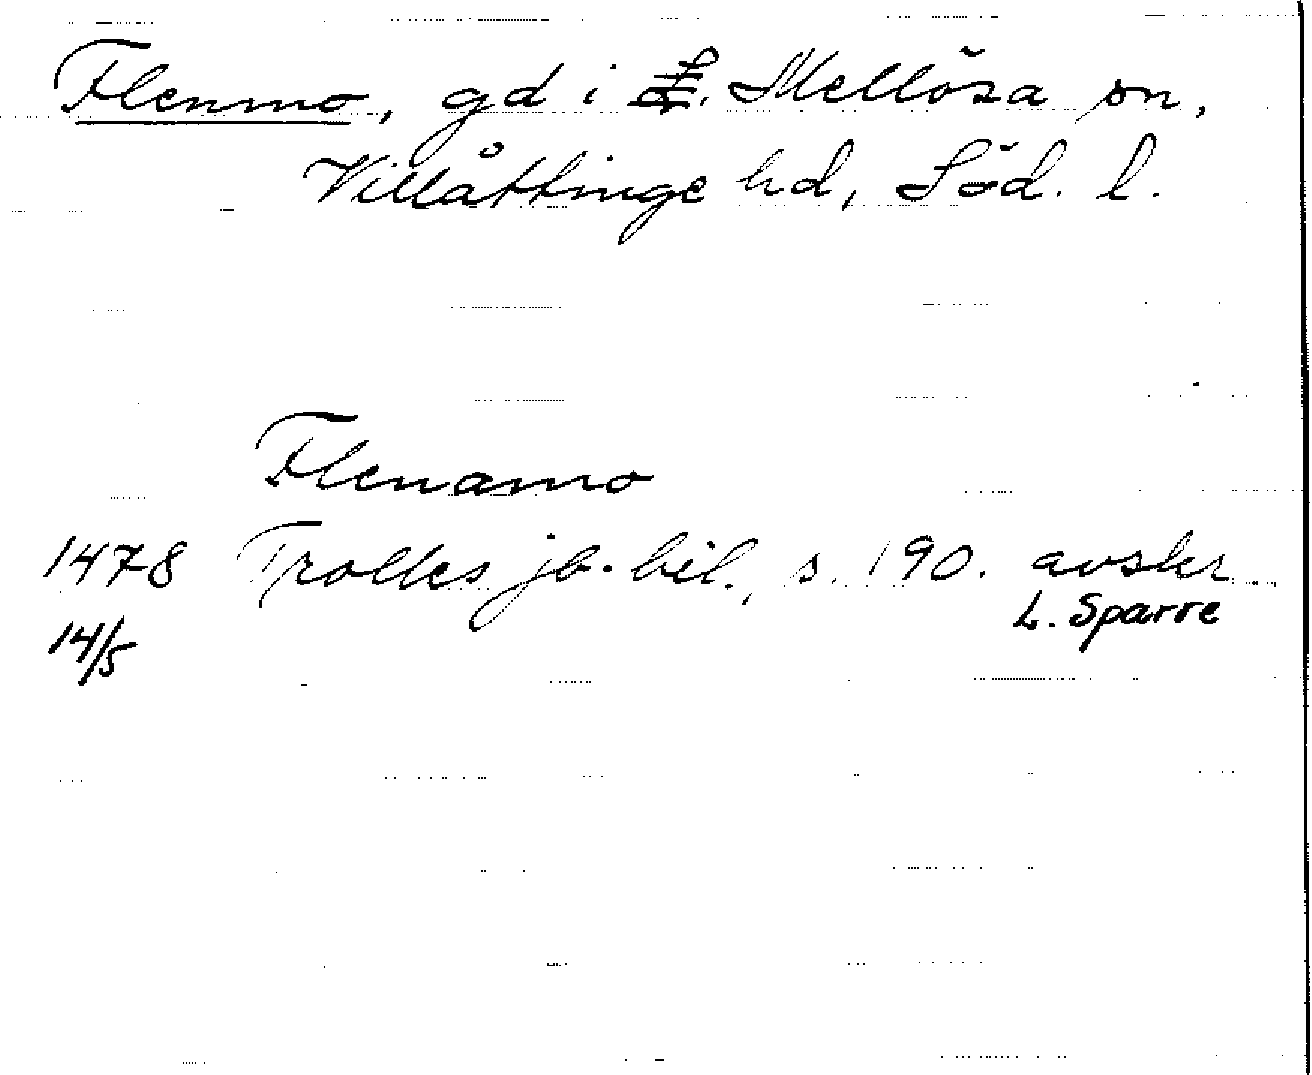 Flenmo, gd i L. Mellösa sn,
Villåttinge hd, Söd. l.
Flenamo
1478 Trolles jb. bil., s. 190. avskr.
14/5 L. Sparre